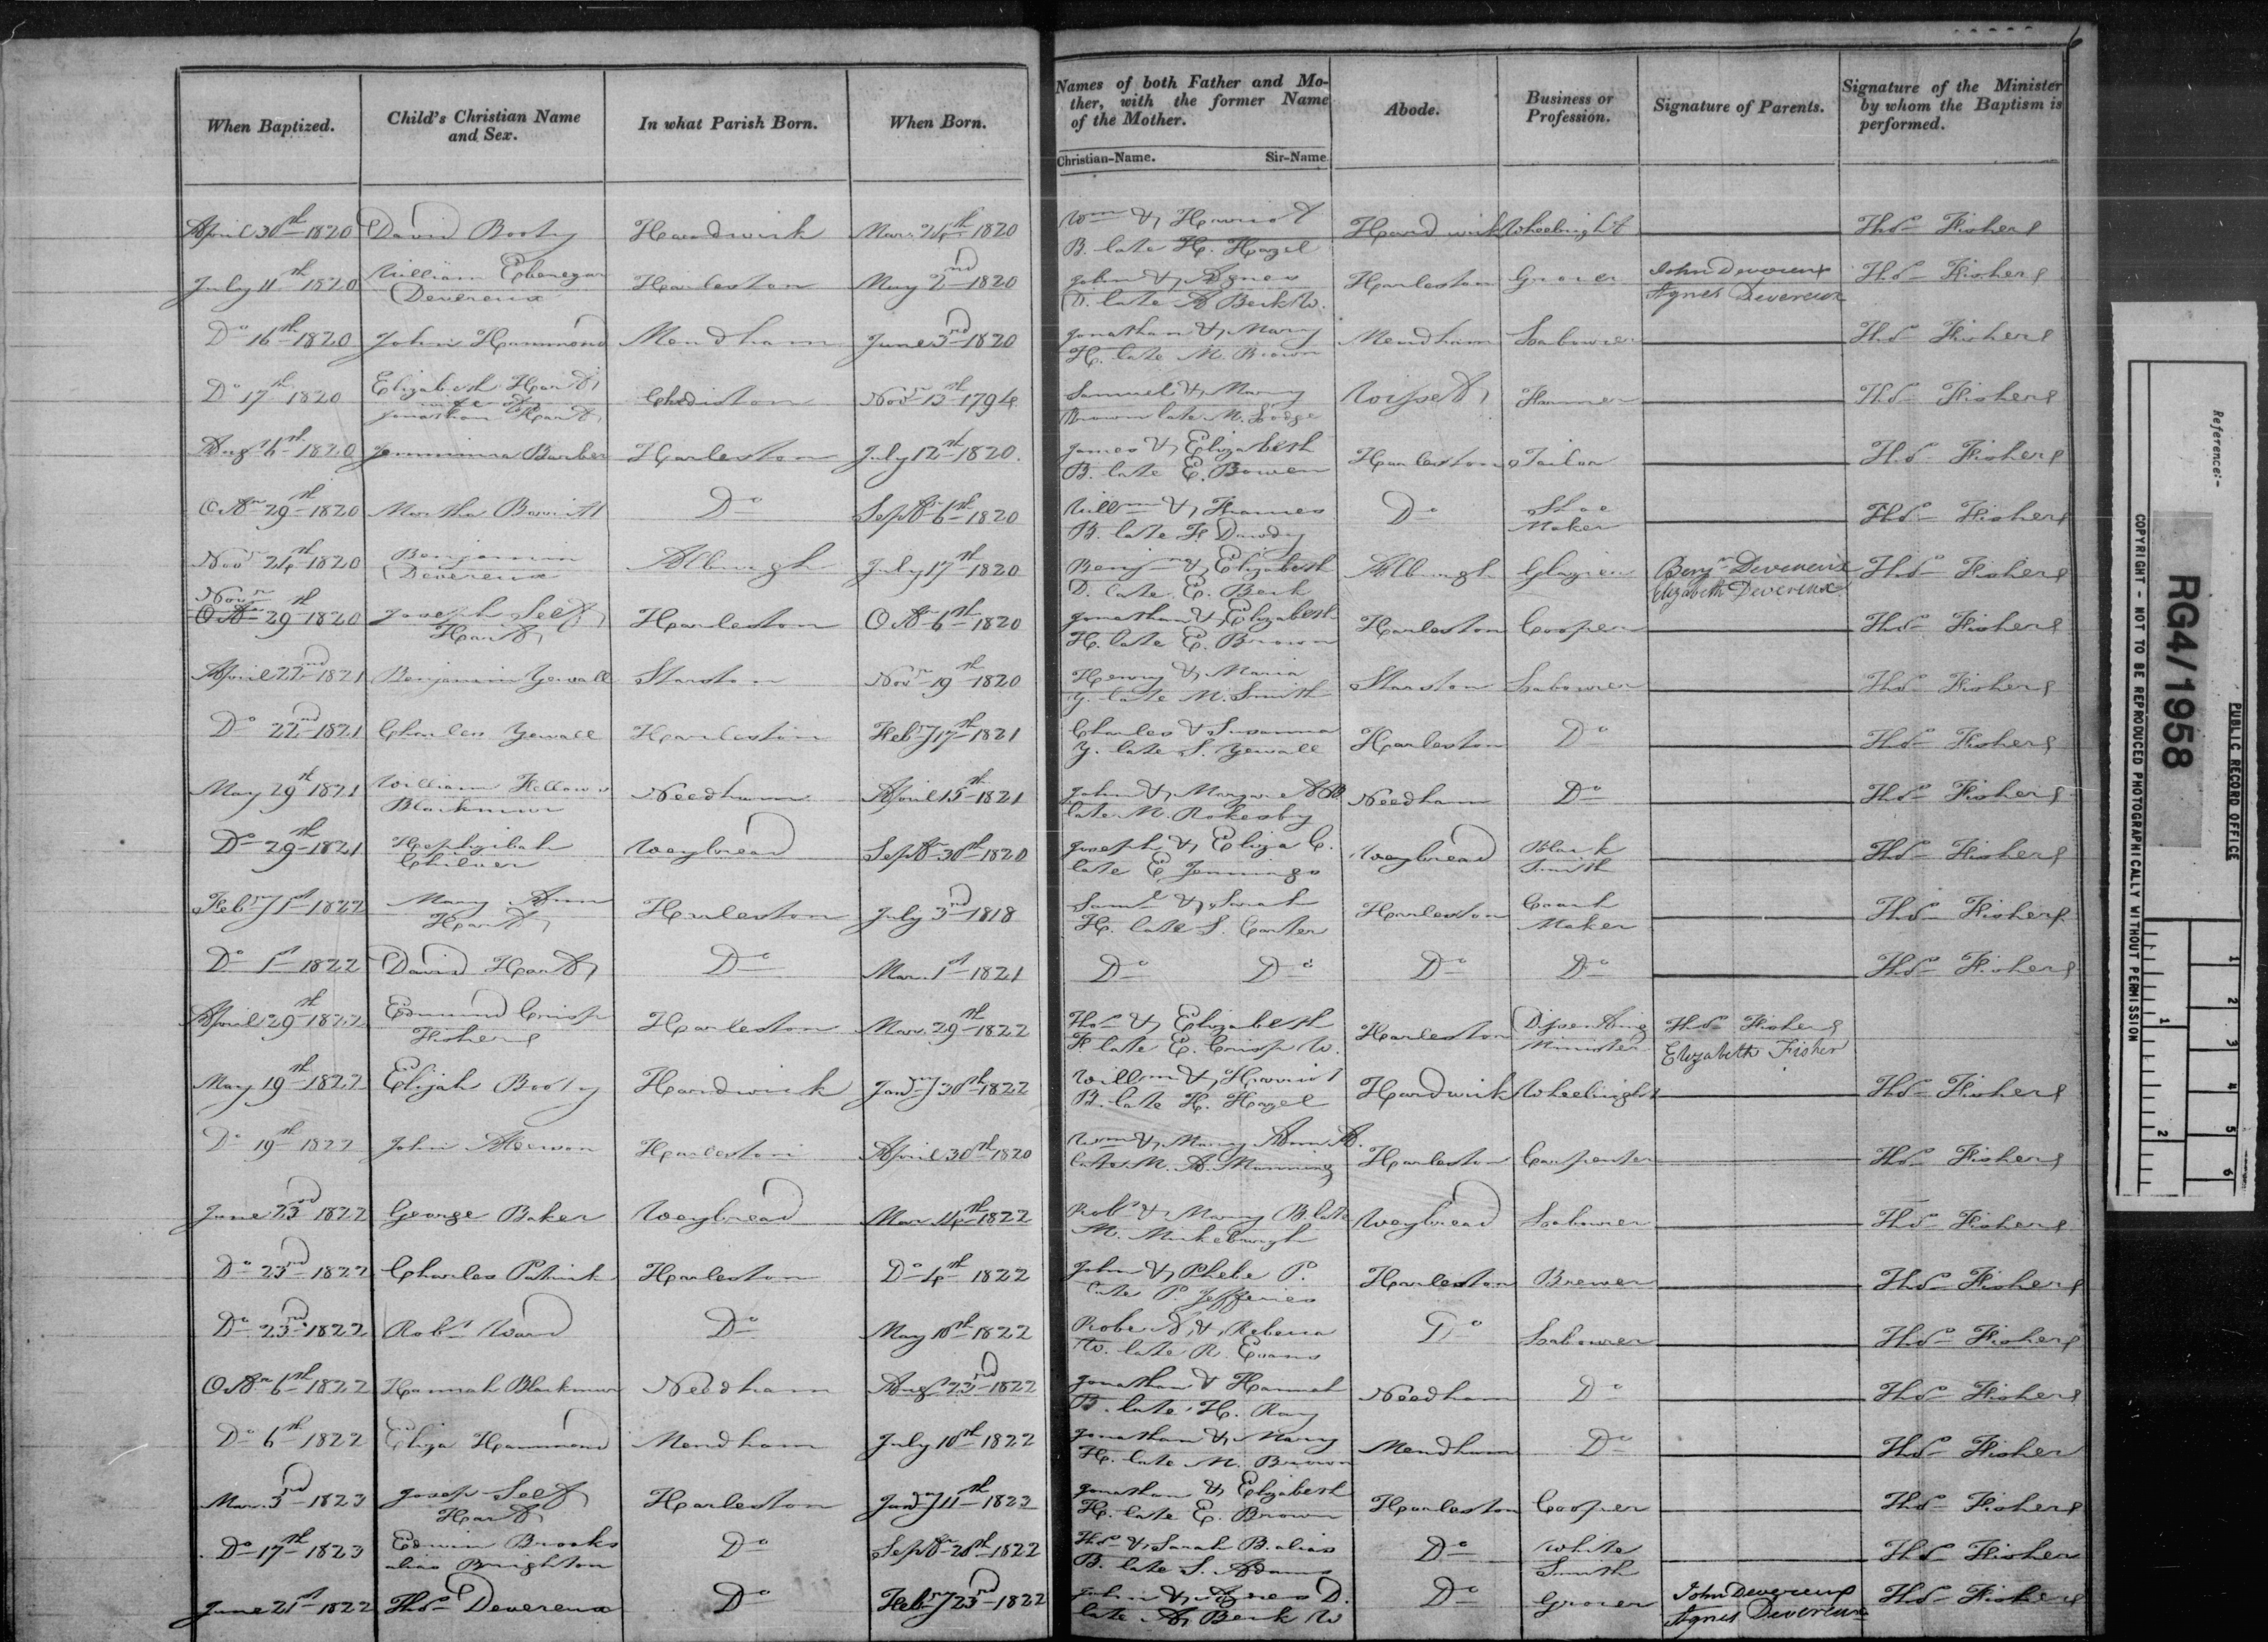 When Baptized.
Child's Christian Name
and Sex.
In what Parish Born.
When Born.
Names of both Father and Mo-
ther, with the former Name
of the Mother.
Christian-Name. Sir-Name
Abode.
Business or
Profession.
Signature of Parents.
Signature of the Minister
by whom the Baptism is
performed.
April 30th 1820 David Booty Hardwick Mar. 24th 1820 Wm & Harriot Hardwick Wheelright Thos Fisher
B. late H. Hazel
July 11th 1820 William Ebenezar Harleston May 2nd 1820 John & Agnes Harleston Grocer John Devereux Thos Fisher
Devereux D. late A Beck W. Agnes Devereux
Do 16th 1820 John Hammond Mendham June 3rd 1820 Jonathan & Mary Mendham Labourer Thos Fisher
H. late M. Brown
Do 17th 1820 Elizabeth Hart Chediston Novr 13th 1794 Samuel & Mary Wissett Farmer Thos Fisher
Jonathan Hart Brown late M. Lodge
Augst 6th 1820 Jemmima Barber Harleston July 12th 1820. James & Elizabeth Harleston Tailor Thos Fisher
B. late E. Bowen
Octr 29th 1820 Martha Do Septr 6th 1820 Willm & Frances Do Shoe Thos Fisher
B. late F. Dowdy Maker
Novr 24th 1820 Benjamin Alburgh July 17th 1820 Benjn & Elizabeth Alburgh Glazier Benjn Devereux Thos Fisher
Devereux D. late E. Beck Elizabeth Devereux
Novr
Octr 29th 1820 Joseph Self Harleston Octr 6th 1820 Jonathan & Elizabeth Harleston Cooper Thos Fisher
Hart H. late E. Brown
April 22nd 1821 Benjamin Yewall Starston Novr 19th 1820 Henry & Maria Starston Labourer Thos Fisher
Y. late M. Smith
Do 22nd 1821 Charles Yewall Harleston Febry 17th 1821 Charles & Susanna Harleston Do Thos Fisher
Y. late S. Yewall
May 29th 1821 William Fellows Needham April 15th 1821 John & Margaret B Needham Do Thos Fisher
Blackmur late M. Rokesby
Do 29th 1821 Hephzibah Weybread Septr 30th 1820 Joseph & Eliza C. Weybread Black Thos Fisher
Chilver late E Jennings Smith
Febry 1st 1822 Mary Ann Harleston July 3rd 1818 Saml & Sarah Harleston Coach Thos Fisher
Hart H. late S. Carter Maker
Do 1st 1822 David Hart Do Mar. 1st 1821 Do Do Do Do Thos Fisher
April 29th 1822 Edmund Crisp Harleston Mar. 29th 1822 Thos & Elizabeth Harleston Dissenting Thos Fisher
Fisher F late E. Crisp W. Minister Elizabeth Fisher
May 19th 1822 Elijah Booty Hardwick Janry 30th 1822 Willm & Harriot Hardwick Wheelright Thos Fisher
B. late H. Hazel
Do 19th 1822 John Harleston April 30th 1820 Wm & Mary Ann A. Harleston Carpenter Thos Fisher
late M. A. Manning
June 23rd 1822 George Baker Weybread Mar. 14th 1822 Robt & Mary B. late Weybread Labourer Thos Fisher
M. Micklburgh
Do 23rd 1822 Charles Patrick Harleston Do 4th 1822 John & Phebe P. Harleston Brewer Thos Fisher
late P. Jefferies
Do 23rd 1822 Robt Ward Do May 10th 1822 Robert & Rebecca Do Labourer Thos Fisher
W. late R. Evans
Octr 6th 1822 Hannah Blackmur Needham Augst 23rd 1822 Jonathan & Hannah Needham Do Thos Fisher
B. late H. Ray
Do 6th 1822 Eliza Hammond Mendham July 10th 1822 Jonathan & Mary Mendham Do Thos Fisher
H. late M. Brown
Mar. 3rd 1823 Joseph Self Harleston Janry 11th 1823 Jonathan & Elizabeth Harleston Cooper Thos Fisher
Hart H. late E. Brown
Do 17th 1823 Edwin Brooks Do Septr 28th 1822 Thos & Sarah B. alias Do White Thos Fisher
alias Brighton B. late S. Adams Smith
June 21st 1822 Thos Devereux Do Febry 23rd 1822 John & Agnes D. Do Grocer John Devereux Thos Fisher
late A Beck W Agnes Devereux
Reference:-
RG4/1958
PUBLIC RECORD OFFICE
COPYRIGHT - NOT TO BE REPRODUCED PHOTOGRAPHICALLY WITHOUT PERMISSION
1 2 3 4 5 6
1 2